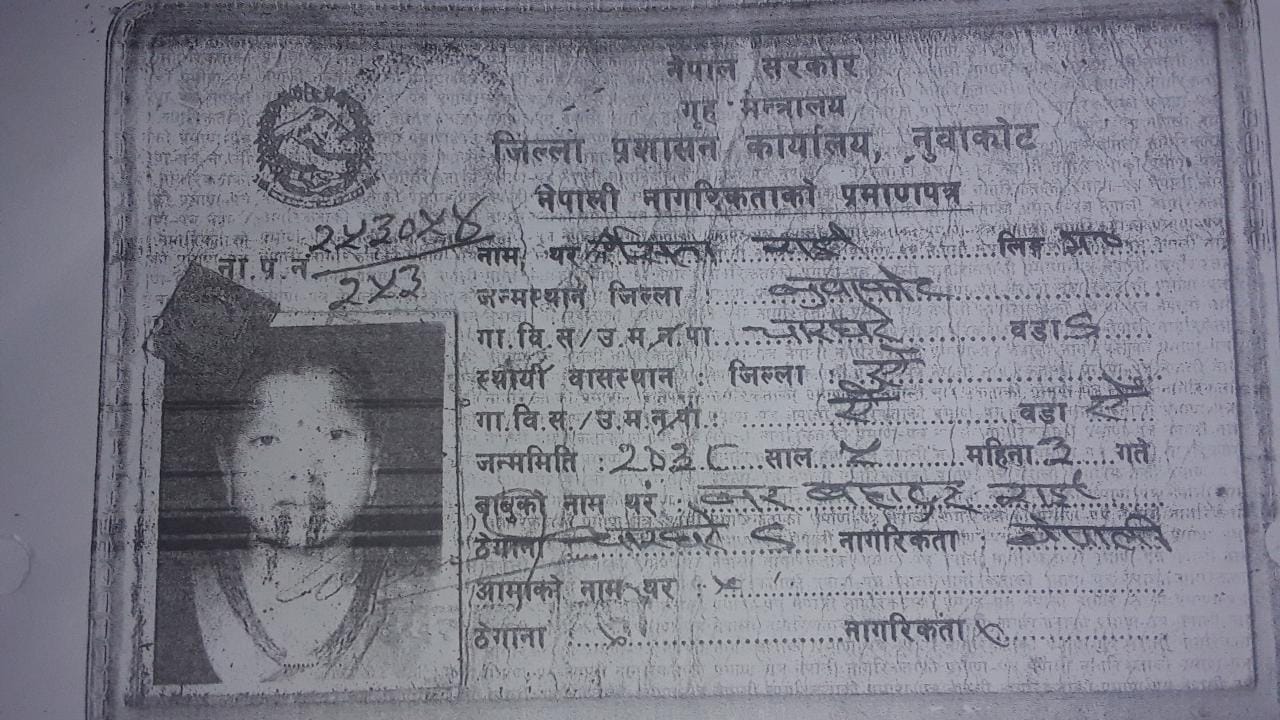 नेपाल सरकार
गृह मन्त्रालय
जिल्ला प्रशासन कार्यालय, नुवाकोट
नेपाली नागरिकताको प्रमाणपत्र
ना.प.नं.
२५३
नाम, थर लिङ्ग
जन्मस्थान जिल्ला : नुवाकोट
गा.वि.स/उ.म.न.पा. चारघरे वडा ५
स्थायी वासस्थान : जिल्ला : ऐ
गा.वि.स./उ.म.न.पा. : ऐ वडा ऐ
जन्ममिति : २०३८ साल ५ महिना ३ गते
बाबुको नाम थर : बहादुर
ठेगाना चारघरे ५ नागरिकता : नेपाली
आमाको नाम थर : ×
ठेगाना : × नागरिकता ×